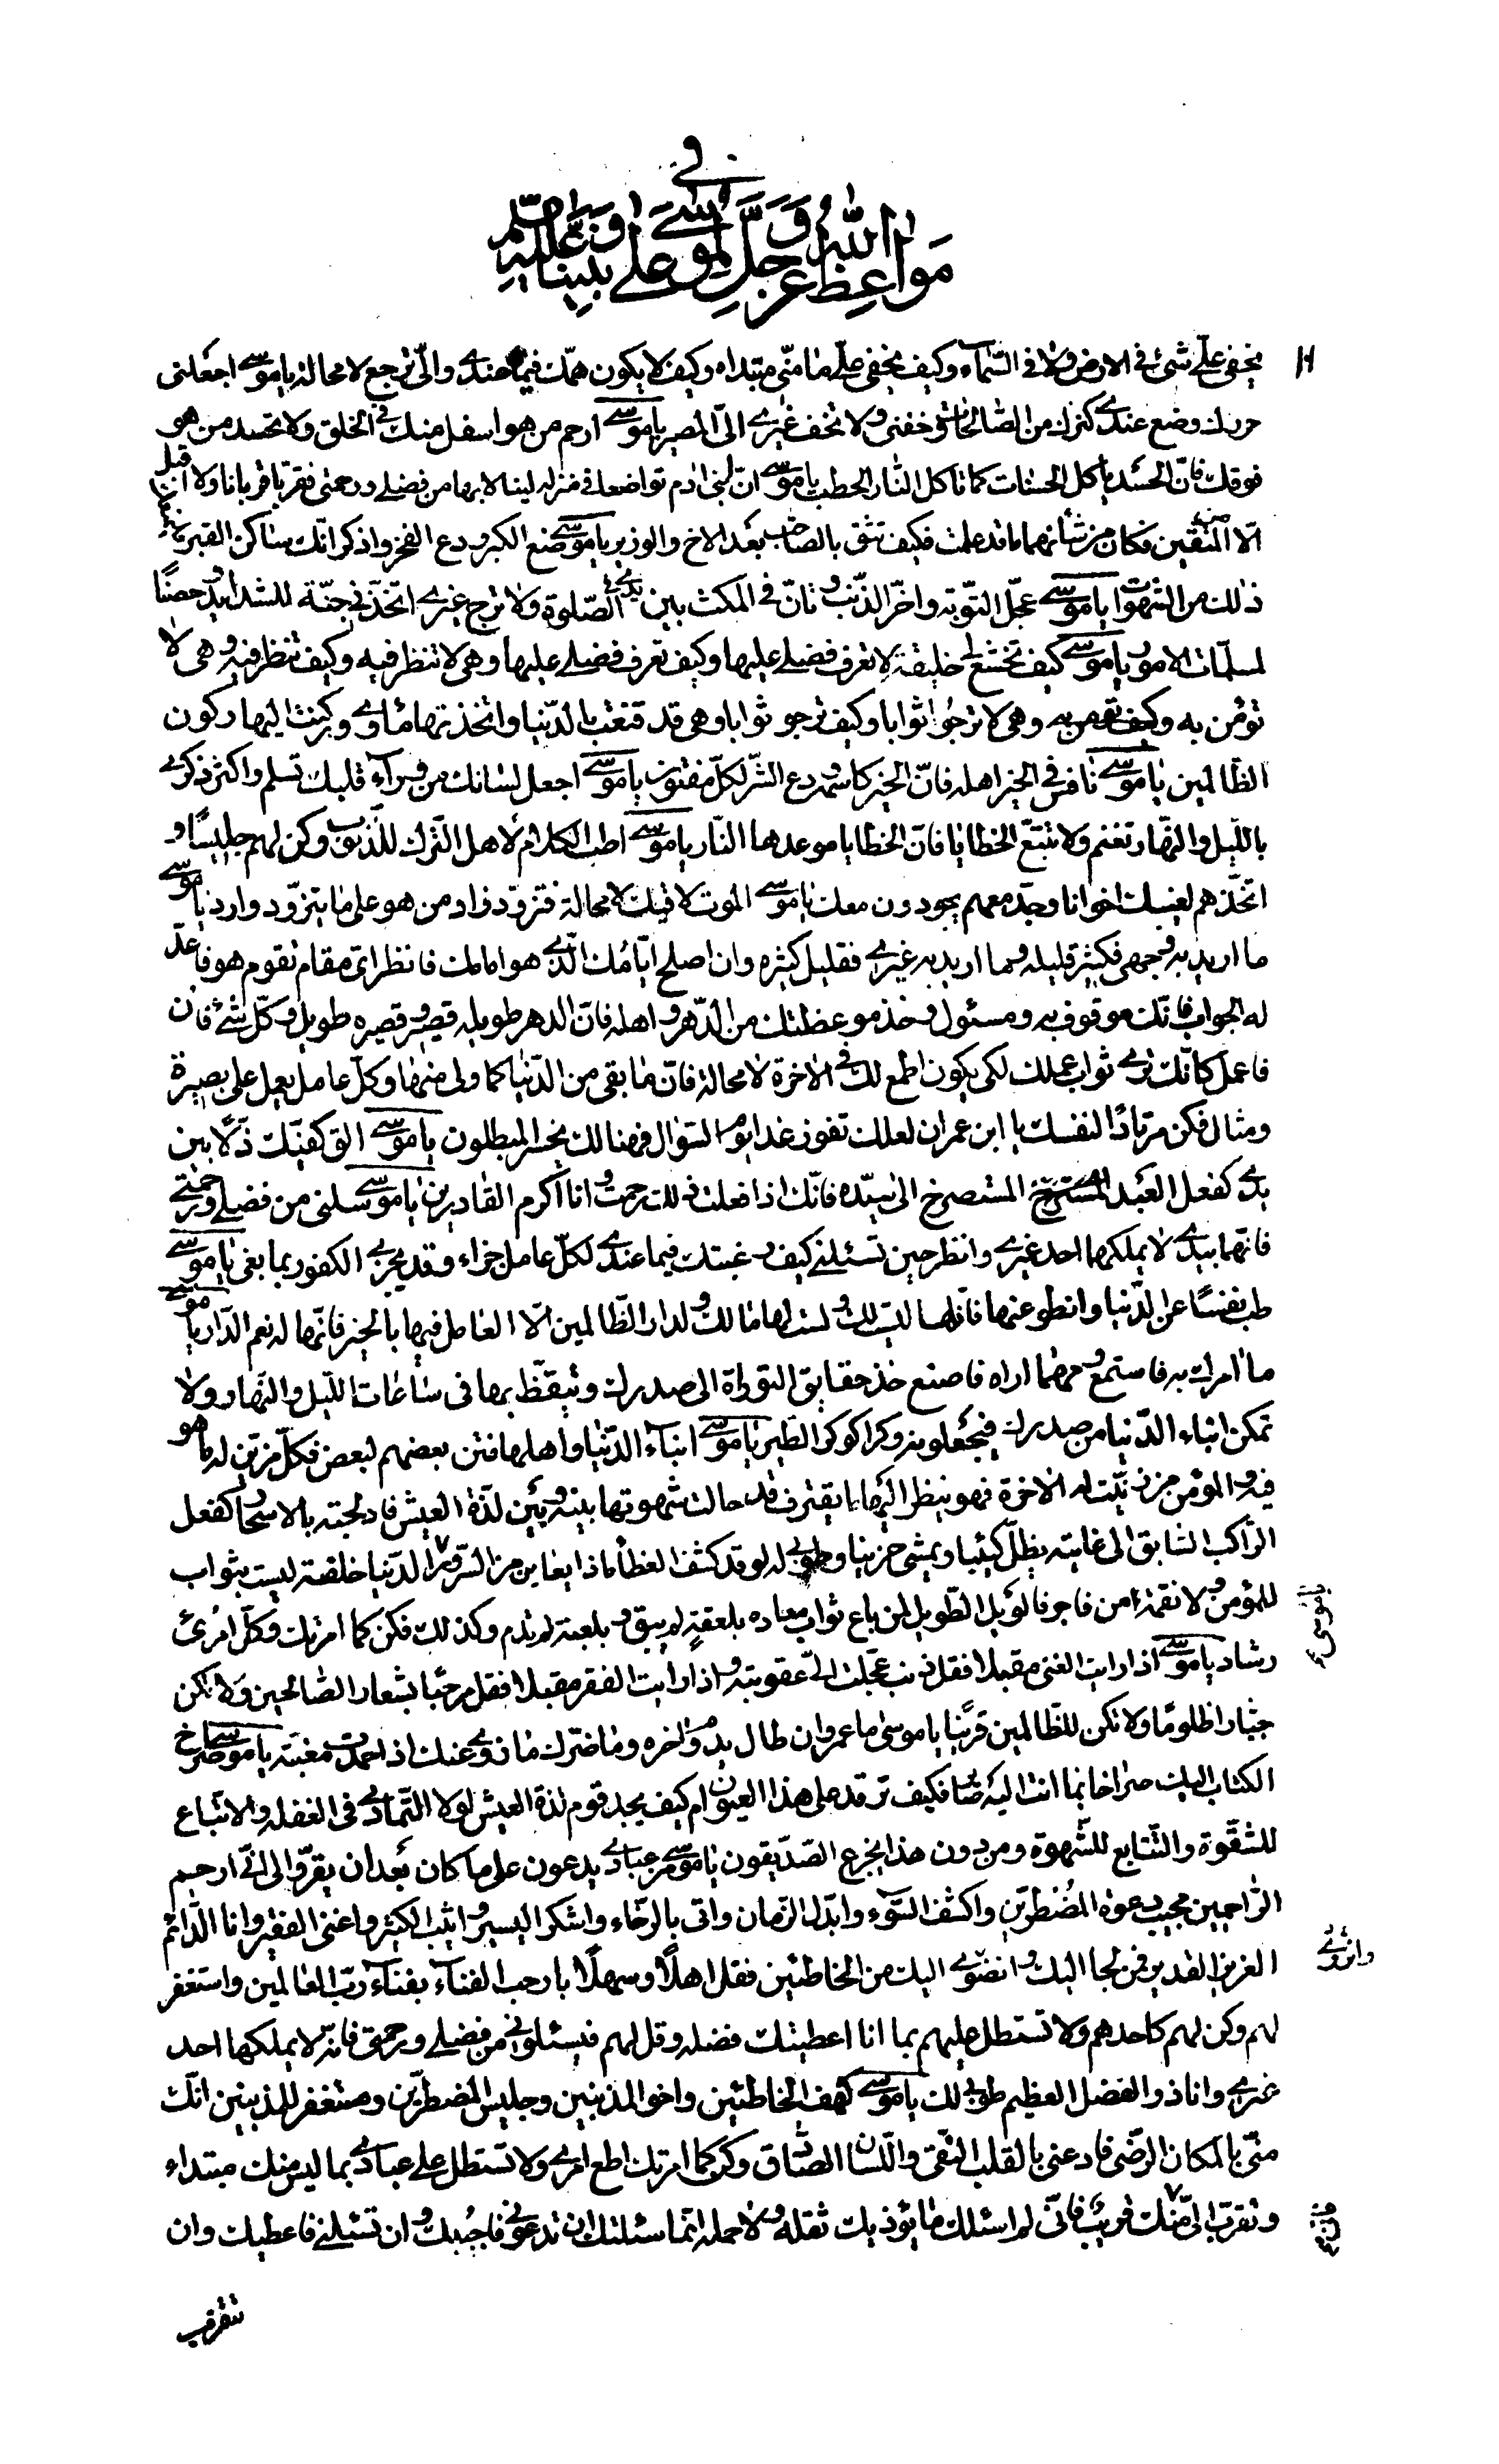 في
مواعظ الله عز و جل لموسى على نبينا و عليه
يخفى علىّ شئ في الارض ولا في السّماء وكيف يخفى علىّ ما منّى مبتداه وكيف لا يكون همّك فيما عندى والىّ ترجع لا محالة يا موسى اجعلنى
حرزك وضع عندى كنزك من الصّالحات وخفنى ولا تخف غيرى الىّ المصير يا موسى ارحم من هو اسفل منك في الخلق ولا تحسد من هو
فوقك فانّ الحسد يأكل الحسنات كما تاكل النّار الحطب يا موسى انّ ابنى ادم تواضعا في منزلة لينالا بها من فضلى ورحمتى فقرّبا قربانا ولا اقبل
الّا من المتّقين فكان من شأنهما ما قد علمت فكيف تثق بالصّاحب بعد الاخ والوزير يا موسى ضع الكبر ودع الفخر واذكر انّك ساكن القبر
ذلك من الشهوات يا موسى عجّل التّوبة واخّر الذّنب و تانّ في المكث بين يدى في الصّلوة ولا ترج غيرى اتّخذنى جنّة للشدايد و حصنًا
لملمّات الامور يا موسى كيف تخشع لى خليقة لا تعرف فضلى عليها وكيف تعرف فضلى عليها وهى لا تنظر فيه وكيف تنظر فيه و هى لا
تؤمن به وكيف تؤمن به وهى لا ترجو ثوابا وكيف ترجو ثوابا وهى قد قنعت بالدّنيا واتّخذتها مأوى وركنت اليها ركون
الظّالمين يا موسى نافس في الخير اهله فانّ الخير كاسمه و دع الشّر لكلّ مفتون يا موسى اجعل لسانك من وراء قلبك تسلم واكثر ذكرى
باللّيل والنّهار تغنم ولا تتّبع الخطايا فانّ الخطايا موعدها النّار يا موسى اطب الكلام لاهل التّرك للذّنوب وكن لهم جليسًا و
اتّخذهم لغيبك اخوانا وجدّ معهم يجدون معك يا موسى الموت لاقيك لا محالة فتزوّد زاد من هو على ما يتزوّد وارد يا موسى
ما اريد به وجهى فكثير قليله وما اريد به غيرى فقليل كثيره وان اصلح ايّامك الّذى هو امامك فانظر اىّ مقام تقوم هو فاعدّ
له الجواب فانّك موقوف به ومسئول وخذ موعظتك من الدّهر و اهله فانّ الدهر طويله قصير و قصيره طويل وكلّ شئ فان
فاعمل كانّك ترى ثواب عملك لكى يكون اطمع لك في الاخرة لا محالة فانّ ما بقى من الدّنيا كما ولى منها وكلّ عامل يعمل على بصيرة
ومثال فكن مرتادًا لنفسك يا ابن عمران لعلك تفوز غدا يوم السّؤال فهنالك يخسر المبطلون يا موسى الق كفّيك ذلّا بين
يدى كفعل العبد المستصرخ الى سيّده فانّك اذا فعلت ذلك رحمت و انا اكرم القادرين يا موسى سلنى من فضلى ورحمتى
فانّهما بيدى لا يملكهما احد غيرى وانظر حين تسئلنى كيف رغبتك فيما عندى لكلّ عامل جزاء وقد يجزى الكفور بما بغى يا موسى
طب نفسًا عن الدّنيا وانطو عنها فانّها ليست لك و لست لها مالك و لدار الظّالمين الّا العامل فيها بالخير فانّها له نعم الدّار يا موسى
ما امرك به فاستمع و مهما اراه فاصنع خذ حقايق التوراة الى صدرك وتيقّظ بها في ساعات اللّيل والنّهار ولا
تمكن ابناء الدّنيا من صدرك فيجعلونه وكرا كوكر الطّير يا موسى ابناء الدّنيا واهلها فتن بعضهم لبعض فكلّ مزيّن له ما هو
فيه و المؤمن من زيّنت له الاخرة فهو ينظر اليها ما يفتر قد حالت شهوتها بينه و بين لذّة العيش فادلجته بالاسحار كفعل
الرّاكب السّابق الى غايته يظلّ كئيبا ويمشى حزينا وطوبى له لو قد كشف الغطا ماذا يعاين من السّرور يا موسى الدّنيا خلقته ليست بثواب
للمؤمن و لا نقمة من فاجر فالويل الطّويل لمن باع ثواب معاده بلعقة لم يبق و بلعبة لم يدم وكذلك فكن كما امرتك وكلّ امرى
رشاد يا موسى اذا رايت الغنى مقبلا فقل ذنب عجّلت الىّ عقوبته و اذا رايت الفقر مقبلا فقل مرحبًا بشعار الصّالحين ولا تكن
جبّارا ظلومًا ولا تكن للظّالمين قرينا يا موسى ما عمر وان طال يذمّ اخره وما ضرّك ما زوى عنك اذا حمدت مغبته يا موسى صرخ
الكتاب اليك صراخا بما انت اليه صائر فكيف ترقد على هذا العيون ام كيف يجد قوم لذة العيش لولا التّمادى في الغفلة والاتباع
للشقّوة والتّتابع للشّهوة ومن دون هذا يجزع الصّدّيقون يا موسى مر عبادى يدعون على ما كان بعد ان يقرّوا لى انّى ارحم
الرّاحمين مجيب دعوة المضطرّين واكشف السّوء وابدّل الزّمان واتى بالرّخاء واشكر اليسير و اثيب الكثير واغنى الفقير وانا الدّائم
العزيز القدير فمن لجا اليك و انضوى اليك من الخاطئين فقل اهلًا وسهلًا يا رحب الفناء بفناء ربّ العالمين واستغفر
لهم وكن لهم كاحدهم ولا تستطل عليهم بما انا اعطيتك فضله وقل لهم فيسئلونى من فضلى ورحمتى فانّه لا يملكها احد
غيرى وانا ذو الفضل العظيم طوبى لك يا موسى كهف الخاطئين واخو المذنبين وجليس المضطرّين ومستغفر للمذنبين انّك
منّى بالمكان الرّضى فادعنى بالقلب النّقى واللّسان الصّادق وكن كما امرتك اطع امرى ولا تستطل على عبادى بما ليس منك مبتداء
وتقرّب الىّ فانّى منك قريب فانّى لم اسئلك ما يؤذيك ثقله و لا حمله انّما سئلتك ان تدعونى فاجيبك و ان تسئلنى فاعطيك وان
تتقرّب